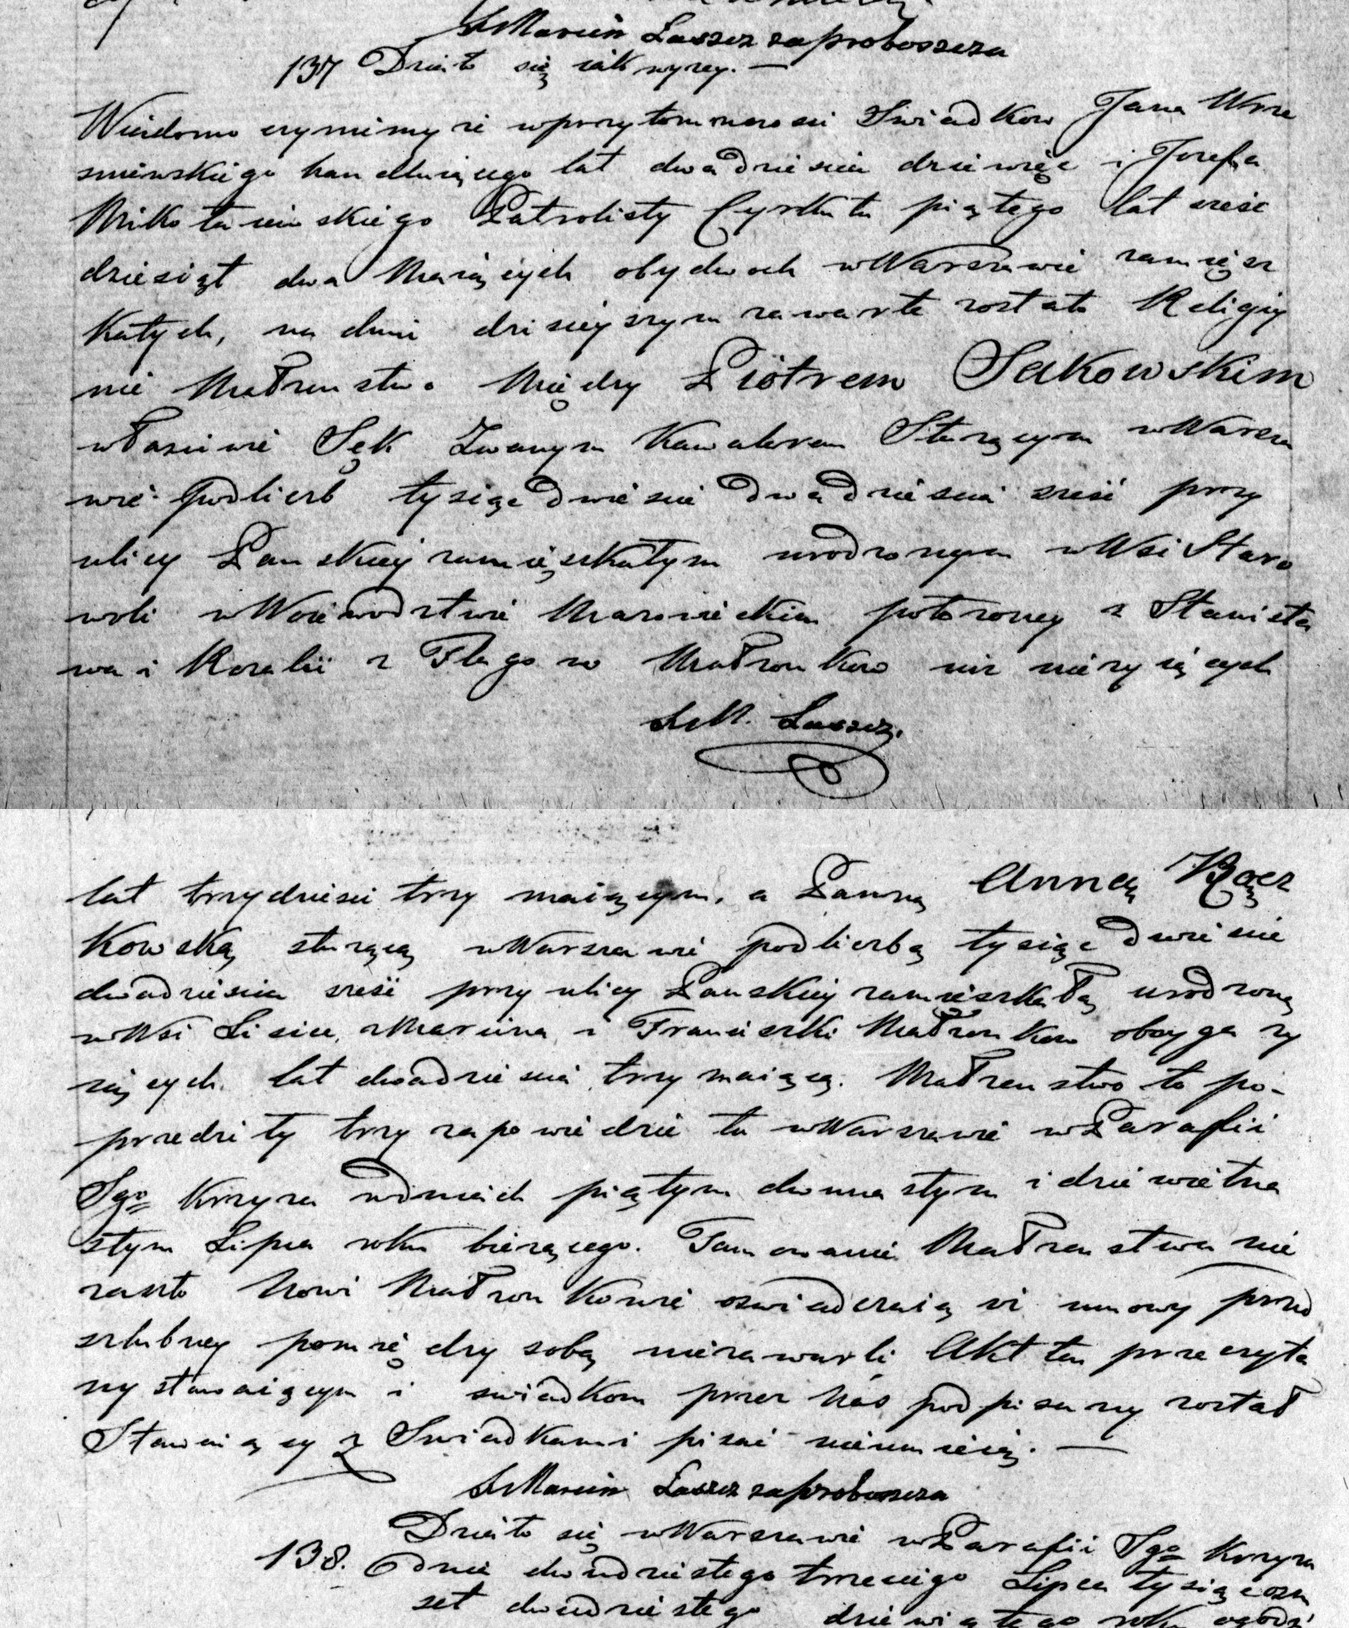 X Marcin Laszcz za proboszcza
137 Działo się iak wyzey. —
Wiadomo czyniemy ze wprzytomnosci Swiadkow Jana Wrze
sniewskiego handluiącego lat dwadziescia dziewięc i Jozefa
Mikołaiewskiego Patrolisty Cyrkułu piątego lat szesc
dziesiąt dwa Maiących obydwoch w Warszawie zamiesz
kałych, na dniu dzisieyszym zawarte zostało Religiy
nie Małzenstwo Między Piotrem Sękowskim
własciwie Sęk Zwanym Kawalerem Słuzącym w Warsza
wie podliczb tysiąc dwiescie dwadziescia szesc przy
ulicy Panskiey zamięszkałym urodzonym w Wsi Staro
woli w Woiewodztwie Mazowieckim połozoney z Stanisła
wa i Rozalii z Flagow Małzonkow niezyiących
X M. Laszcz.
lat trzydziesci trzy maiącym, a Panną Anną Rącz
kowską słuzącą w Warszawie podliczbą tysiąc dwiescie
dwadziescia szesc przy ulicy Panskiey zamieszkałą urodzoną
w Wsi Lisice z Marcina i Franciszki Małzonkow oboyga zy
iących lat dwadziescia trzy maiącą. Małzenstwo to po-
przedziły trzy zapowiedzie tu w Warszawie w Parafii
Sgo Krzyza wdniach piątym dwunastym i dziewietna
stym Lipca roku biezącego. Tamowanie Małzenstwa nie
zaszło Nowi Małzonkowie oswiadczaią iz umowy przed
szlubney pomiędzy sobą niezawarli Akt ten przeczyta
ny stawaiącym i swiadkom przez Nas podpisany został
Stawaiący z Swiadkami pisac nieumieią. —
X Marcin Laszcz za proboszcza
138. Działo się w Warszawie w Parafii Sgo Krzyza
dnia dwudziestego trzeciego Lipca tysiąc osm
set dwudziestego dziewiątego roku ogodzi